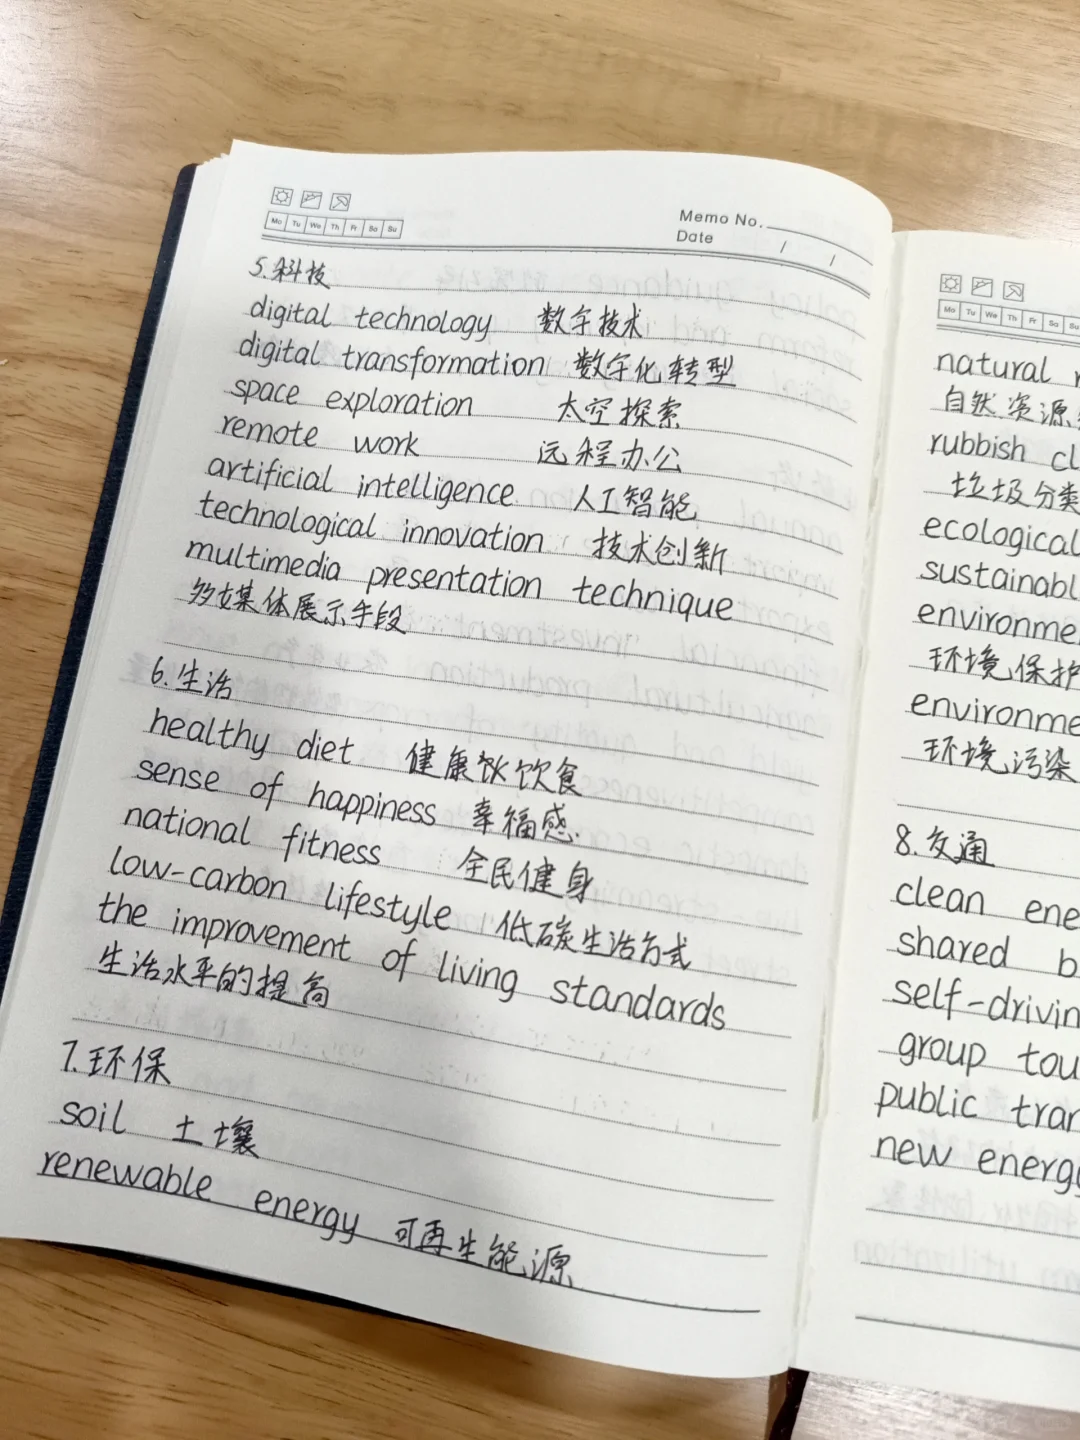 Mo Tu We Th Fr Sa Su
Memo No.
Date / /
5.科技
digital technology 数字技术
digital transformation 数字化转型
space exploration 太空探索
remote work 远程办公
artificial intelligence 人工智能
technological innovation 技术创新
multimedia presentation technique
多媒体展示手段
6.生活
healthy diet 健康饮食
sense of happiness 幸福感.
national fitness 全民健身
low-carbon lifestyle 低碳生活方式
the improvement of living standards
生活水平的提高
7.环保
soil 土壤
renewable energy 可再生能源
Mo Tu We Th Fr Sa
natural
自然资源
rubbish
垃圾分类
ecological
环境保护
环境污染
8.交通
clean
shared
self-driving
group
public
new energy